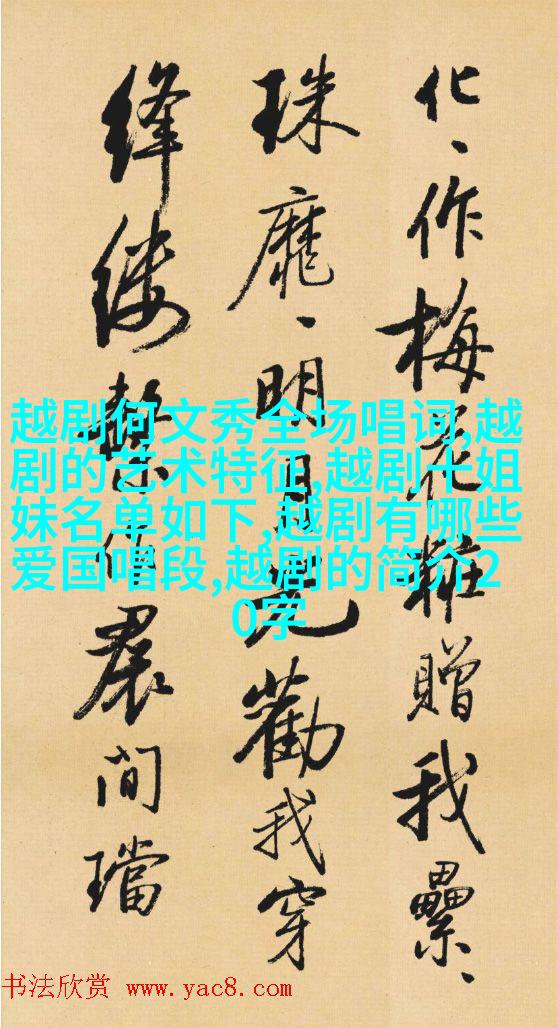 化、作梅花粧贈我纍、
珠靡、明月光勸我穿
绛缕繫作裠间璫
越剧何文秀全场唱词,越
剧的艺术特征,越剧十姐
妹名单如下,越剧有哪些
爱国唱段,越剧的简介2
0字
书法欣赏 www.yac8.com